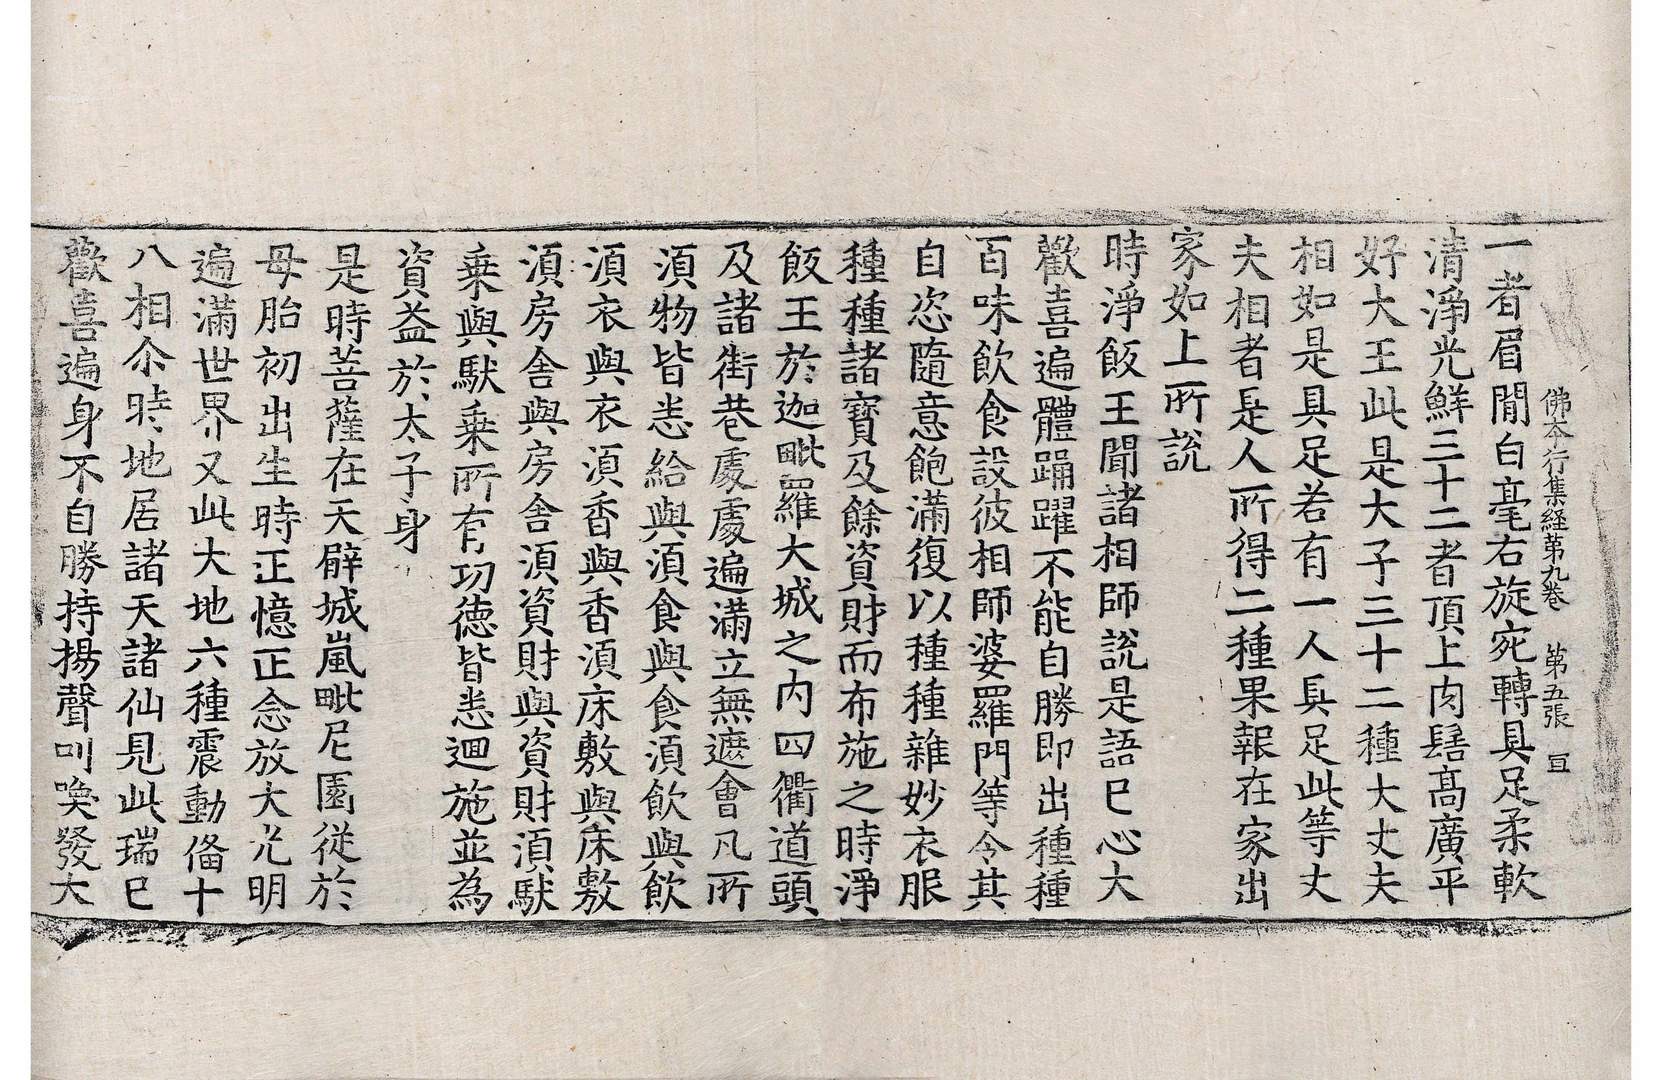 佛本行集経第九巻　第五張　亘
一者眉間白毫右旋宛轉具足柔軟
清淨光鮮三十二者頂上肉髻髙廣平
好大王此是大子三十二種大丈夫
相如是具足若有一人具足此等丈
夫相者是人所得二種果報在家出
家如上所說
時淨飯王聞諸相師說是語已心大
歡喜遍體踊躍不能自勝即出種種
百味飲食設彼相師婆羅門等令其
自恣隨意飽滿復以種種雜妙衣服
種種諸寶及餘資財而布施之時淨
飯王於迦毗羅大城之内四衢道頭
及諸街巷處處遍滿立無遮會凡所
湏物皆悉給與湏食與食湏飲與飲
湏衣與衣湏香與香湏床敷與床敷
湏房舎與房舎湏資財與資財湏馱
乗與馱乗所有功德皆悉迴施並為
資益於太子身
是時菩薩在天臂城嵐毗尼園從於
母胎初出生時正憶正念放大光明
遍滿世界又此大地六種震動俻十
八相尒時地居諸天諸仙見此瑞已
歡喜遍身不自勝持揚聲叫喚發大